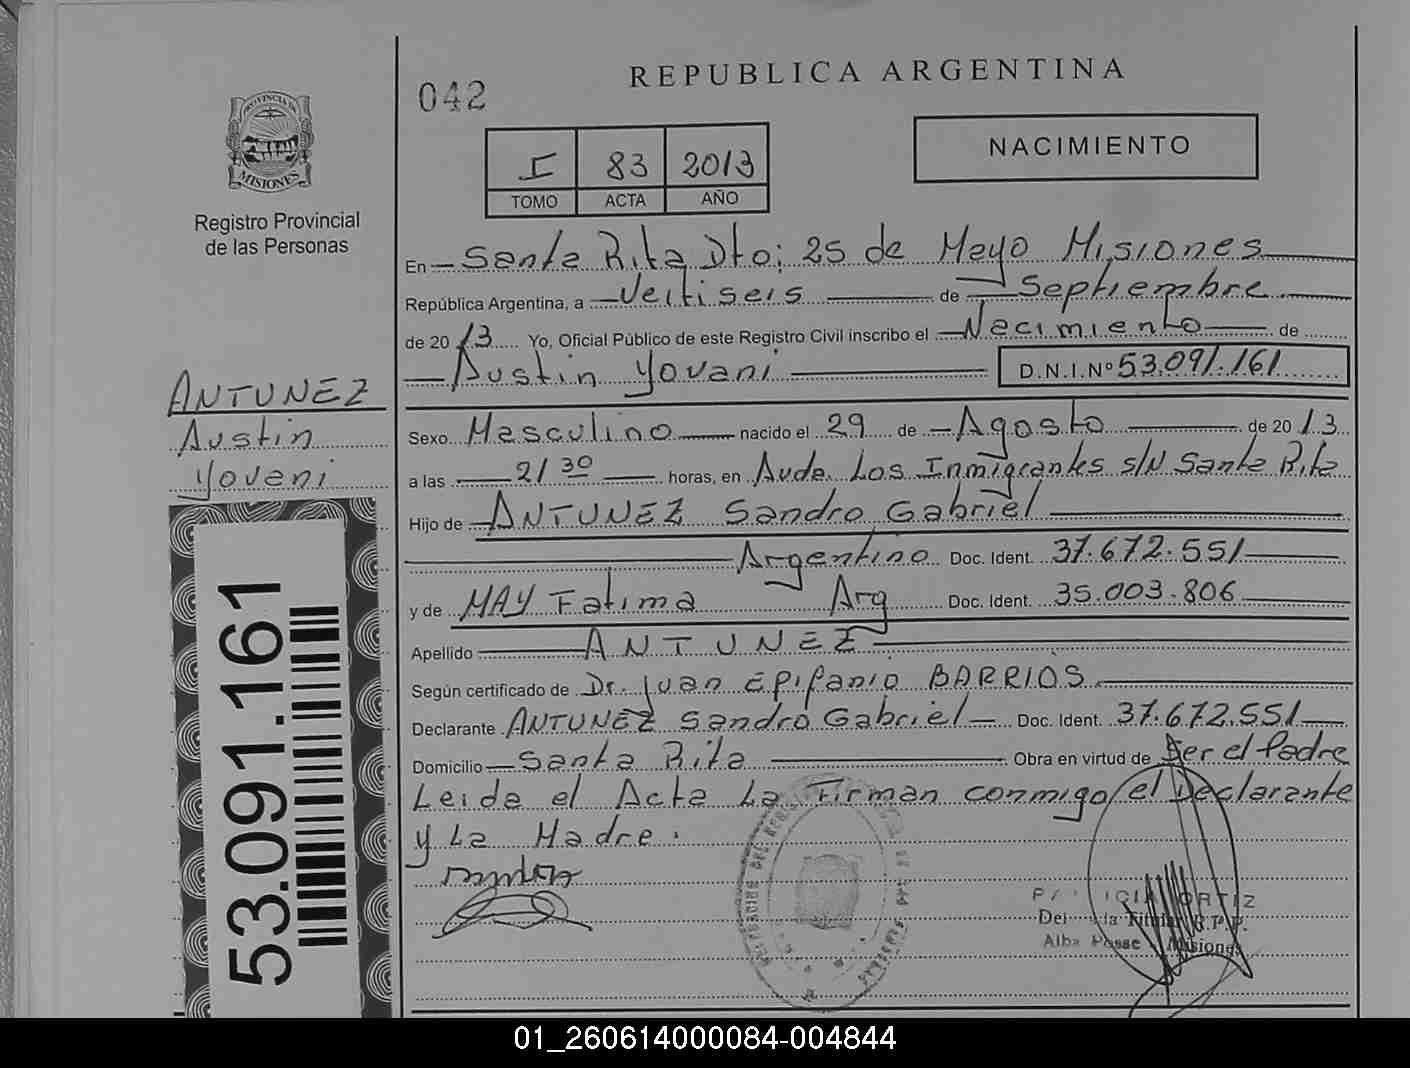 042
REPUBLICA ARGENTINA
PROVINCIA DE
MISIONES
Registro Provincial
de las Personas
I 83 2013
TOMO ACTA AÑO
NACIMIENTO
En Santa Rita Dto: 25 de Mayo Misiones
República Argentina, a Veitiseis de Septiembre
de 2013 Yo, Oficial Público de este Registro Civil inscribo el Nacimiento de
Austin Yovani D.N.I.Nº 53.091.161
ANTUNEZ
Austin
Yovani
Sexo Masculino nacido el 29 de Agosto de 2013
a las 21 30 horas, en Avda. Los Inmigrantes s/N Santa Rita
Hijo de ANTUNEZ Sandro Gabriel
Argentino Doc. Ident. 37.672.551
y de MAY Fatima Arg Doc. Ident. 35.003.806
Apellido ANTUNEZ
Según certificado de Dr. Juan Epifanio BARRIOS
Declarante ANTUNEZ Sandro Gabriel Doc. Ident. 37.672.551
Domicilio Santa Rita Obra en virtud de Ser el Padre
Leida el Acta La Firman conmigo el Declarante
y La Madre.
ORTIZ
Titular R.P.P.
Alba Posse Misiones
53.091.161
01_260614000084-004844